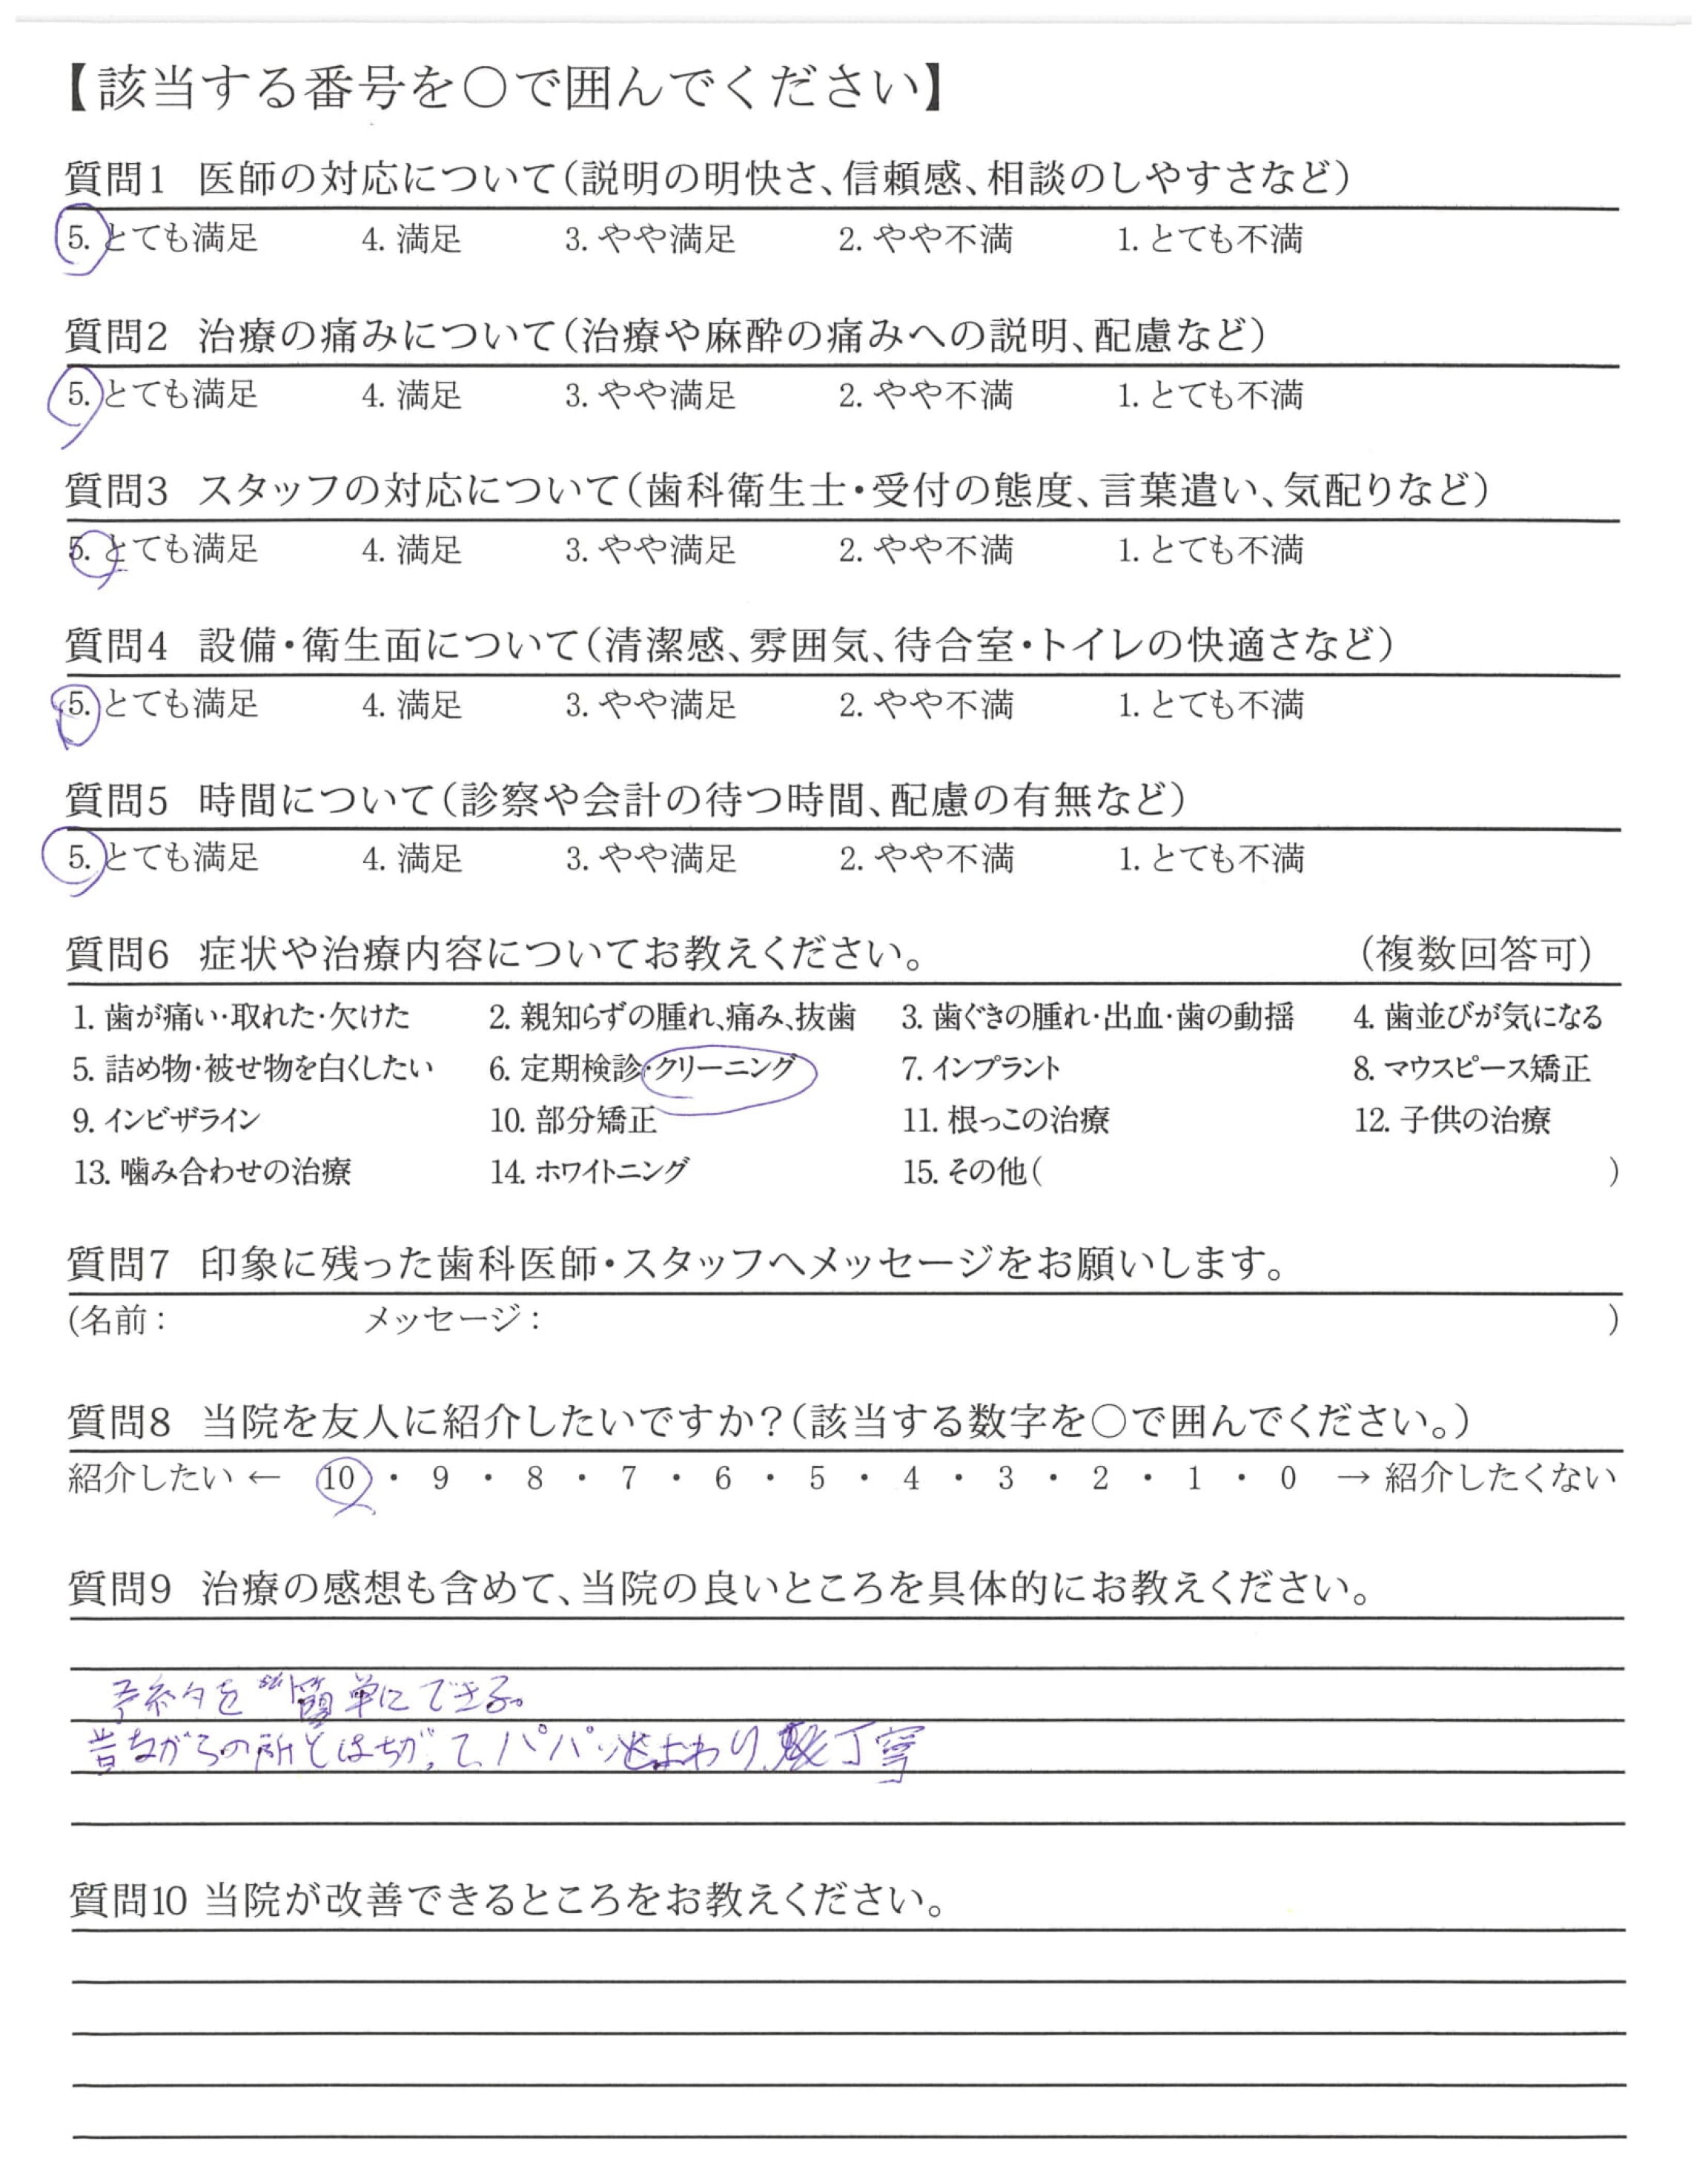 【該当する番号を○で囲んでください】
質問1 医師の対応について(説明の明快さ、信頼感、相談のしやすさなど)
5. とても満足 4. 満足 3. やや満足 2. やや不満 1. とても不満
質問2 治療の痛みについて(治療や麻酔の痛みへの説明、配慮など)
5. とても満足 4. 満足 3. やや満足 2. やや不満 1. とても不満
質問3 スタッフの対応について(歯科衛生士・受付の態度、言葉遣い、気配りなど)
5. とても満足 4. 満足 3. やや満足 2. やや不満 1. とても不満
質問4 設備・衛生面について(清潔感、雰囲気、待合室・トイレの快適さなど)
5. とても満足 4. 満足 3. やや満足 2. やや不満 1. とても不満
質問5 時間について(診察や会計の待つ時間、配慮の有無など)
5. とても満足 4. 満足 3. やや満足 2. やや不満 1. とても不満
質問6 症状や治療内容についてお教えください。 (複数回答可)
1. 歯が痛い・取れた・欠けた 2. 親知らずの腫れ、痛み、抜歯 3. 歯ぐきの腫れ・出血・歯の動揺 4. 歯並びが気になる
5. 詰め物・被せ物を白くしたい 6. 定期検診・クリーニング 7. インプラント 8. マウスピース矯正
9. インビザライン 10. 部分矯正 11. 根っこの治療 12. 子供の治療
13. 噛み合わせの治療 14. ホワイトニング 15. その他( )
質問7 印象に残った歯科医師・スタッフへメッセージをお願いします。
(名前: メッセージ: )
質問8 当院を友人に紹介したいですか?(該当する数字を○で囲んでください。)
紹介したい ← 10 ・ 9 ・ 8 ・ 7 ・ 6 ・ 5 ・ 4 ・ 3 ・ 2 ・ 1 ・ 0 → 紹介したくない
質問9 治療の感想も含めて、当院の良いところを具体的にお教えください。
簡単にできる。
昔ながらの所とはちがって、パパッとおわり、丁寧
質問10 当院が改善できるところをお教えください。